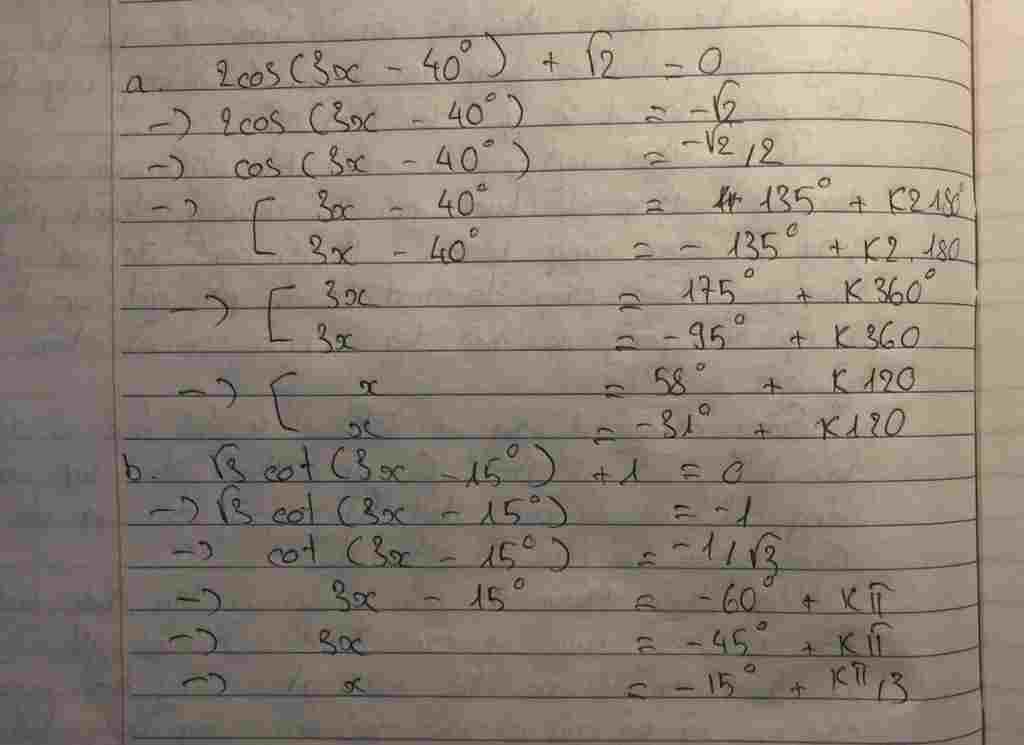 a. 2cos(3x - 40°) + √2 = 0
-> 2cos (3x - 40°) = -√2
-> cos (3x - 40°) = -√2/2
-> [ 3x - 40° = 135° + K2180°
3x - 40° = - 135° + K2.180
-> [ 3x = 175° + K360°
3x = -95° + K360
-> [ x = 58° + K120
x = -31° + K120
b. √3 cot(3x - 15°) + 1 = 0
-> √3 cot (3x - 15°) = -1
-> cot (3x - 15°) = -1/√3
-> 3x - 15° = -60° + Kπ
-> 3x = -45° + Kπ
-> x = -15° + Kπ/3